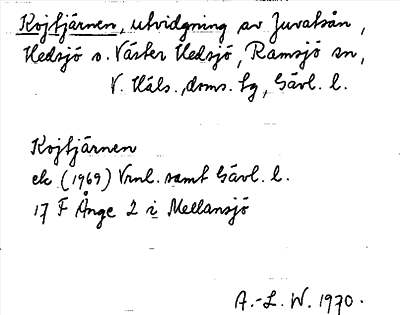 Kojtjärnen, utvidgning av Juvatsån,
Hedsjö o. Väster Hedsjö, Ramsjö sn,
V. Häls. doms. tg, Gävl. l.
Kojtjärnen
ek (1969) Vrnl. samt Gävl. l.
17 F Ånge 2 i Mellansjö
A.-L. W. 1970.